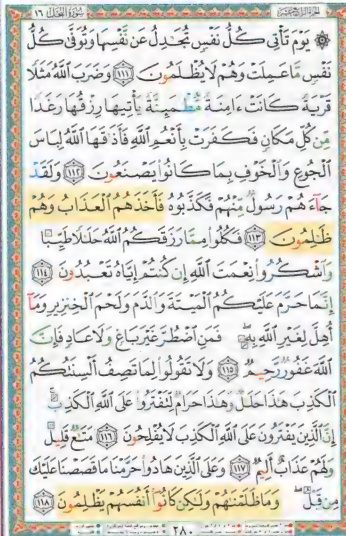 سورة النحل ١٦
۞ يَوْمَ تَأْتِى كُلُّ نَفْسٍ تُجَٰدِلُ عَن نَّفْسِهَا وَتُوَفَّىٰ كُلُّ
نَفْسٍ مَّا عَمِلَتْ وَهُمْ لَا يُظْلَمُونَ ١١١ وَضَرَبَ ٱللَّهُ مَثَلًا
قَرْيَةً كَانَتْ ءَامِنَةً مُّطْمَئِنَّةً يَأْتِيهَا رِزْقُهَا رَغَدًا
مِّن كُلِّ مَكَانٍ فَكَفَرَتْ بِأَنْعُمِ ٱللَّهِ فَأَذَٰقَهَا ٱللَّهُ لِبَاسَ
ٱلْجُوعِ وَٱلْخَوْفِ بِمَا كَانُوا۟ يَصْنَعُونَ ١١٢ وَلَقَدْ
جَآءَهُمْ رَسُولٌ مِّنْهُمْ فَكَذَّبُوهُ فَأَخَذَهُمُ ٱلْعَذَابُ وَهُمْ
ظَٰلِمُونَ ١١٣ فَكُلُوا۟ مِمَّا رَزَقَكُمُ ٱللَّهُ حَلَٰلًا طَيِّبًا
وَٱشْكُرُوا۟ نِعْمَتَ ٱللَّهِ إِن كُنتُمْ إِيَّاهُ تَعْبُدُونَ ١١٤
إِنَّمَا حَرَّمَ عَلَيْكُمُ ٱلْمَيْتَةَ وَٱلدَّمَ وَلَحْمَ ٱلْخِنزِيرِ وَمَآ
أُهِلَّ لِغَيْرِ ٱللَّهِ بِهِۦ ۖ فَمَنِ ٱضْطُرَّ غَيْرَ بَاغٍ وَلَا عَادٍ فَإِنَّ
ٱللَّهَ غَفُورٌ رَّحِيمٌ ١١٥ وَلَا تَقُولُوا۟ لِمَا تَصِفُ أَلْسِنَتُكُمُ
ٱلْكَذِبَ هَٰذَا حَلَٰلٌ وَهَٰذَا حَرَامٌ لِّتَفْتَرُوا۟ عَلَى ٱللَّهِ ٱلْكَذِبَ ۚ
إِنَّ ٱلَّذِينَ يَفْتَرُونَ عَلَى ٱللَّهِ ٱلْكَذِبَ لَا يُفْلِحُونَ ١١٦ مَتَٰعٌ قَلِيلٌ
وَلَهُمْ عَذَابٌ أَلِيمٌ ١١٧ وَعَلَى ٱلَّذِينَ هَادُوا۟ حَرَّمْنَا مَا قَصَصْنَا عَلَيْكَ
مِن قَبْلُ ۖ وَمَا ظَلَمْنَٰهُمْ وَلَٰكِن كَانُوٓا۟ أَنفُسَهُمْ يَظْلِمُونَ ١١٨
٢٨٠